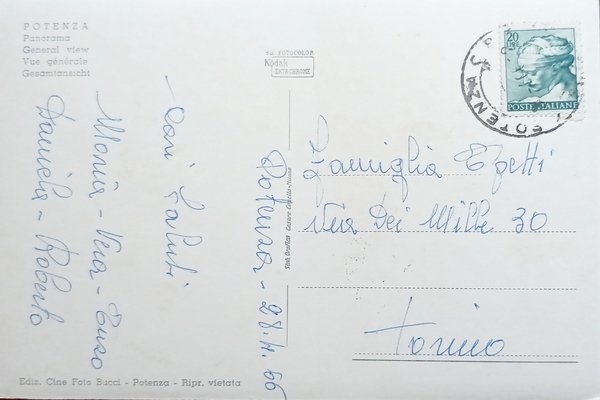 POTENZA
Panorama
General view
Vue générale
Gesamtansicht
su FOTOCOLOR
Kodak
EKTACHROME
20
LIRE
POSTE ITALIANE
POTENZA
Potenza - 28.4.66
Cari Saluti
Monia - Vera - Enzo
Daniela - Roberto
Famiglia
Via Dei Mille 30
Torino
Stab. Grafico Cesare Capello - Milano
Ediz. Cine Foto Bucci - Potenza - Ripr. vietata